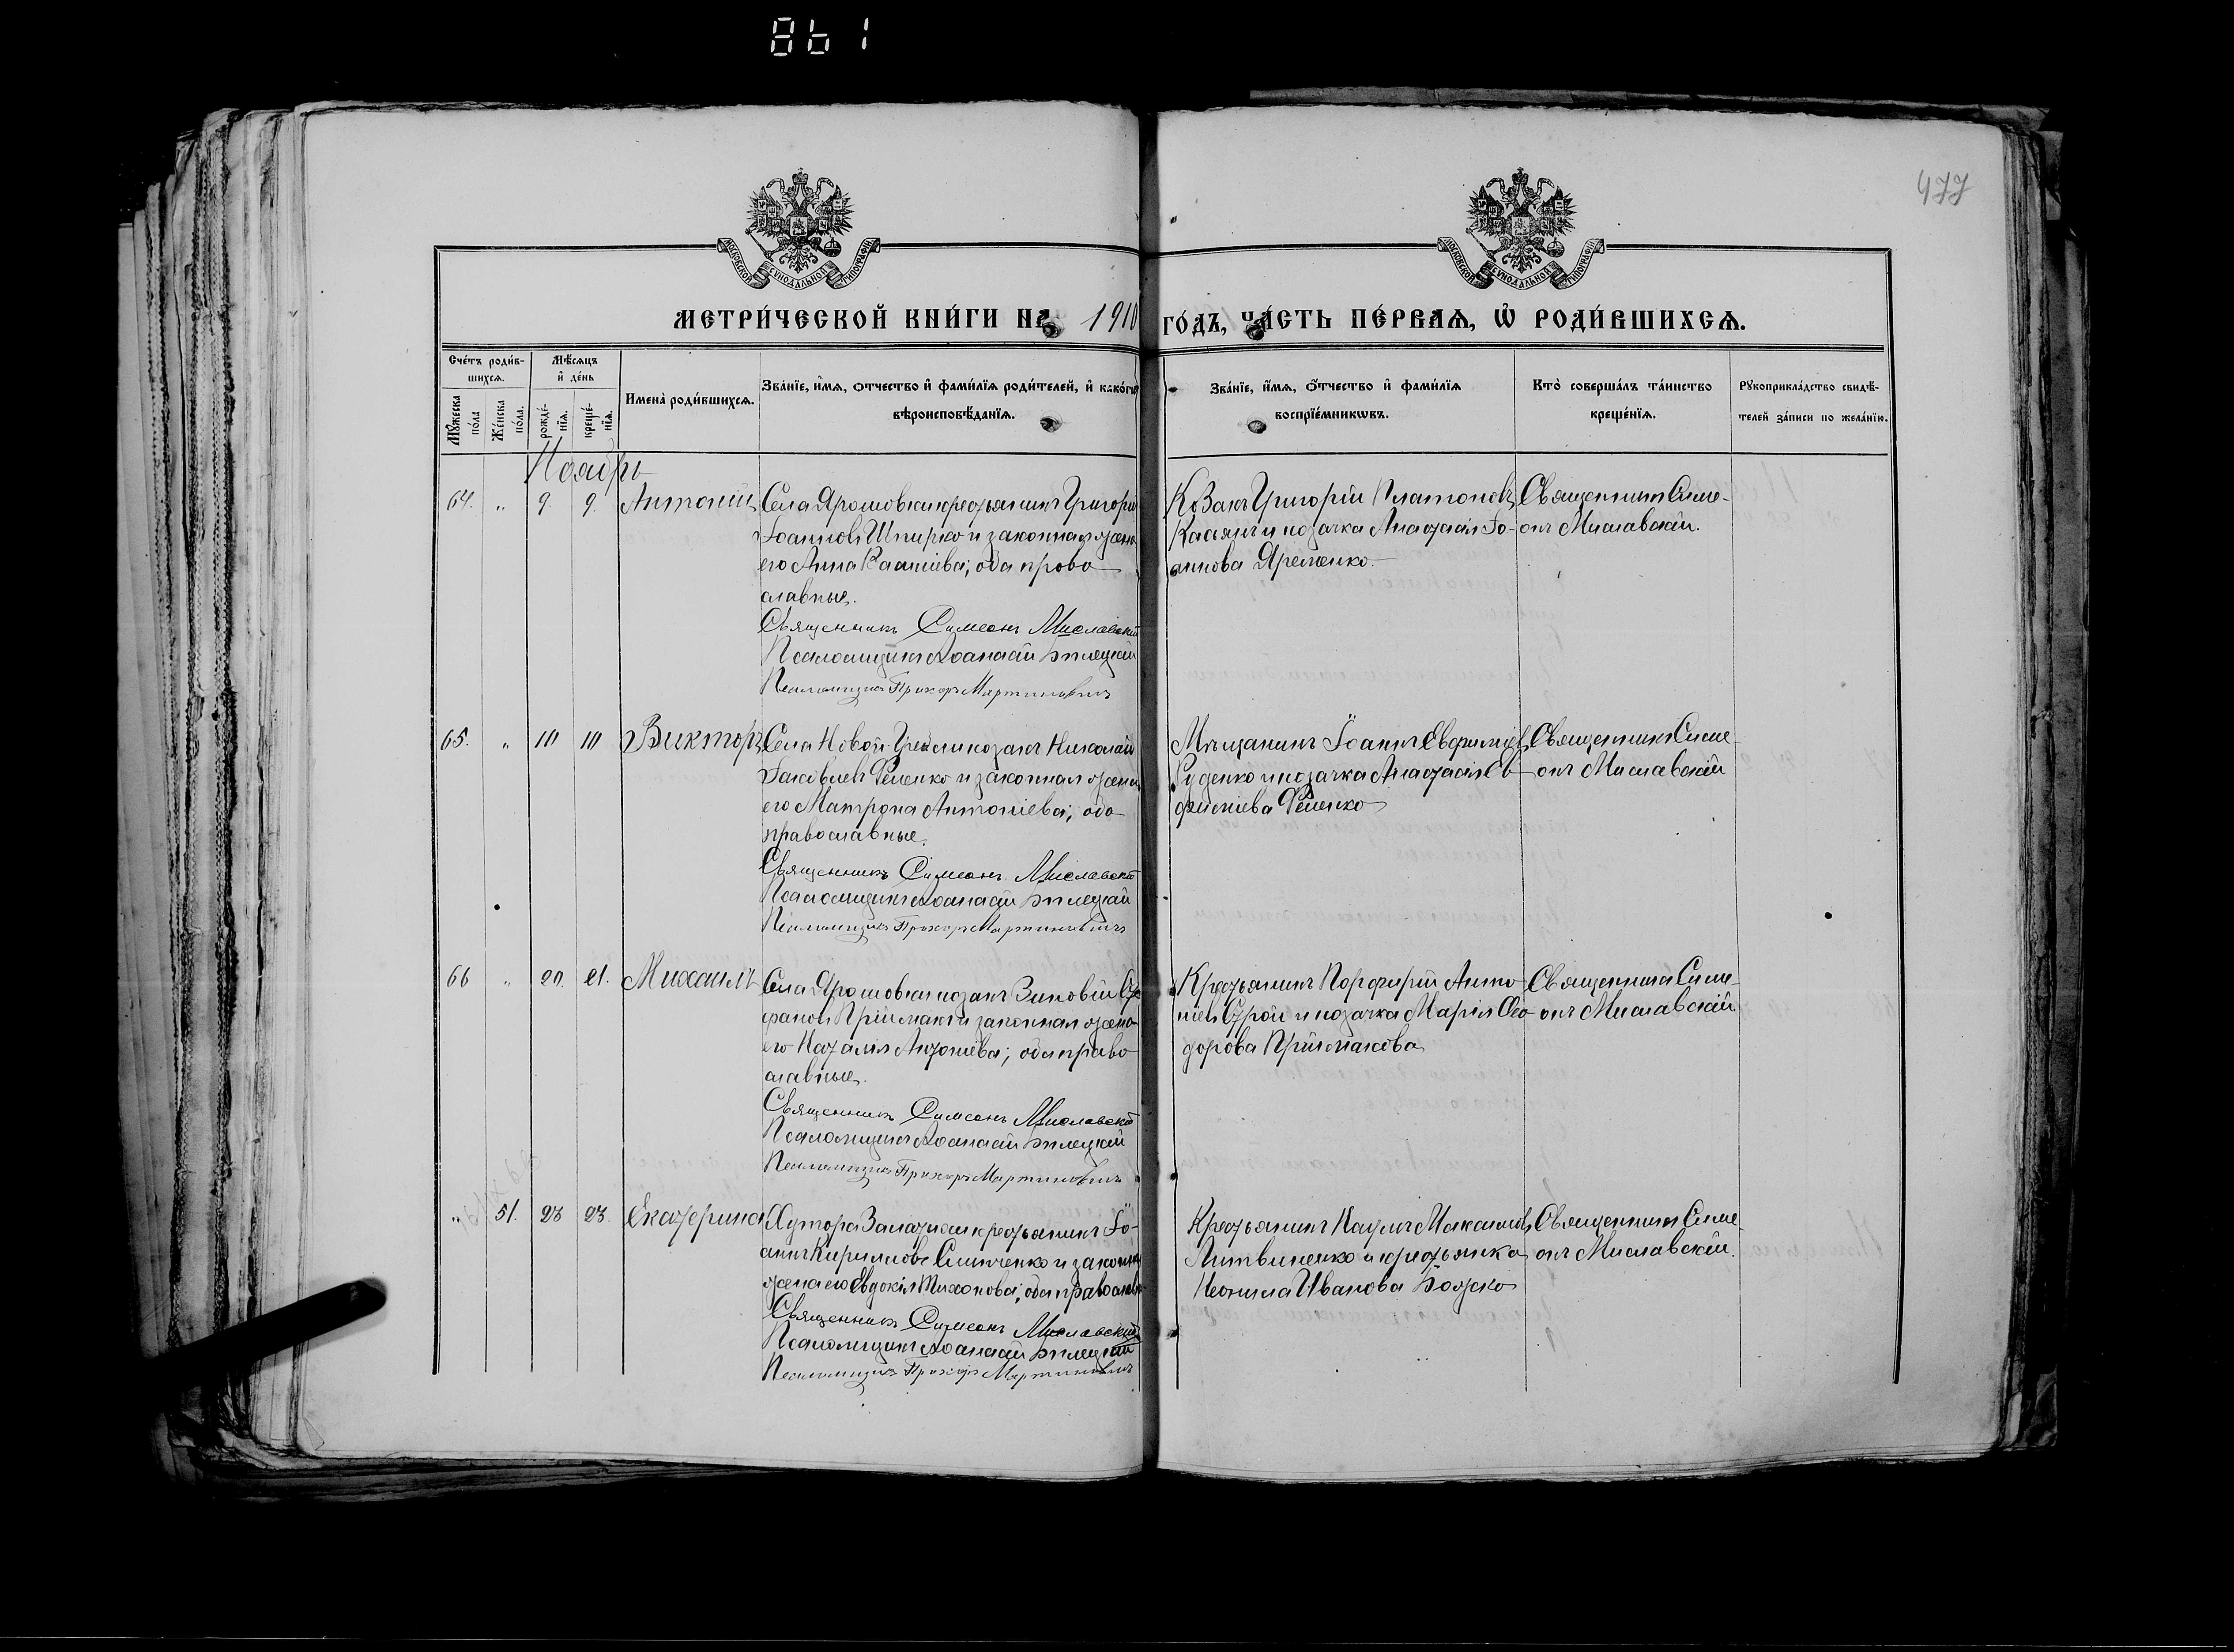 861
477
МОСКОВСКОЙ СѴНОДАЛЬНОЙ ТИПОГРАФІИ
МОСКОВСКОЙ СѴНОДАЛЬНОЙ ТИПОГРАФІИ
МЕТРИ́ЧЕСКОЙ КНИ́ГИ НА 1910 ГО́ДЪ, ЧА́СТЬ ПЕ́РВАЯ, Ѡ҆ РОДИ́ВШИХСЯ.
Сче́тъ роди́в-
шихся.
Мꙋ́жеска
по́ла
Же́нска
по́ла.
Мѣ́сяцъ
и҆ де́нь
рожде́-
нїя.
креще́-
нїя.
Имена̀ роди́вшихся.
Зва́нїе, и҆́мя, ѻ҆́тчество и҆ фами́лїя роди́телей, и҆ како́гѡ
вѣроисповѣ́данїя.
Зва́нїе, и҆́мя, ѻ҆́тчество и҆ фами́лїя
воспрїе́мникѡвъ.
Кто̀ соверша́лъ та́инство
креще́нїя.
Рꙋкоприкла́дство свидѣ́-
телей за́писи по жела́нїю.
Ноябрь
64. „ 9. 9. Антоній
Села Ярошовки крестьянинъ Григорій
Іоанновъ Шпирко и законная жена
его Анна; оба право
славные.
Священникъ Симеонъ Миславскій
Псаломщикъ Аѳанасій Билецкій
Псаломщикъ Прохоръ Мартиновичъ
Козакъ Григорій Платоновъ
Касьянъ и козачка Анастасія Іо-
аннова Яременко.
Священникъ Симе-
онъ Миславскій.
65. „ 10 10 Викторъ
Села Новой Гребли козакъ Николай
Іаковлевъ Фененко и законная жена
его Матрона Антоніева; оба
православные.
Священникъ Симеонъ Миславскій
Псаломщикъ Аѳанасій Билецкій
Псаломщикъ Прохоръ Мартиновичъ
Мѣщанинъ Іоаннъ Евфиміевъ
Руденко и козачка Анастасія Ев-
фиміева Фененко
Священникъ Симе-
онъ Миславскій
66 „ 20. 21. Михаилъ
Села Ярошовки козакъ Зиновій Сте
фановъ Пріймакъ и законная жена
его Наталія Антоніева; оба право
славные.
Священникъ Симеонъ Миславскій
Псаломщикъ Аѳанасій Билецкій
Псаломщикъ Прохоръ Мартиновичъ
Крестьянинъ Порфирій Анто-
ніевъ Строй и козачка Марія Ѳео-
дорова Пріймакова
Священникъ Симе-
онъ Миславскій
„ 51. 23 23. Екатерина
Хутора крестьянинъ Іо-
аннъ Кирилловъ и законная
жена его Евдокія Тихонова; оба православн
Священникъ Симеонъ Миславскій
Псаломщикъ Аѳанасій Билецкій
Псаломщикъ Прохоръ Мартиновичъ
Крестьянинъ Наумъ
Литвиненко и крестьянка
Неонила Иванова Божко
Священникъ Симе-
онъ Миславскій.